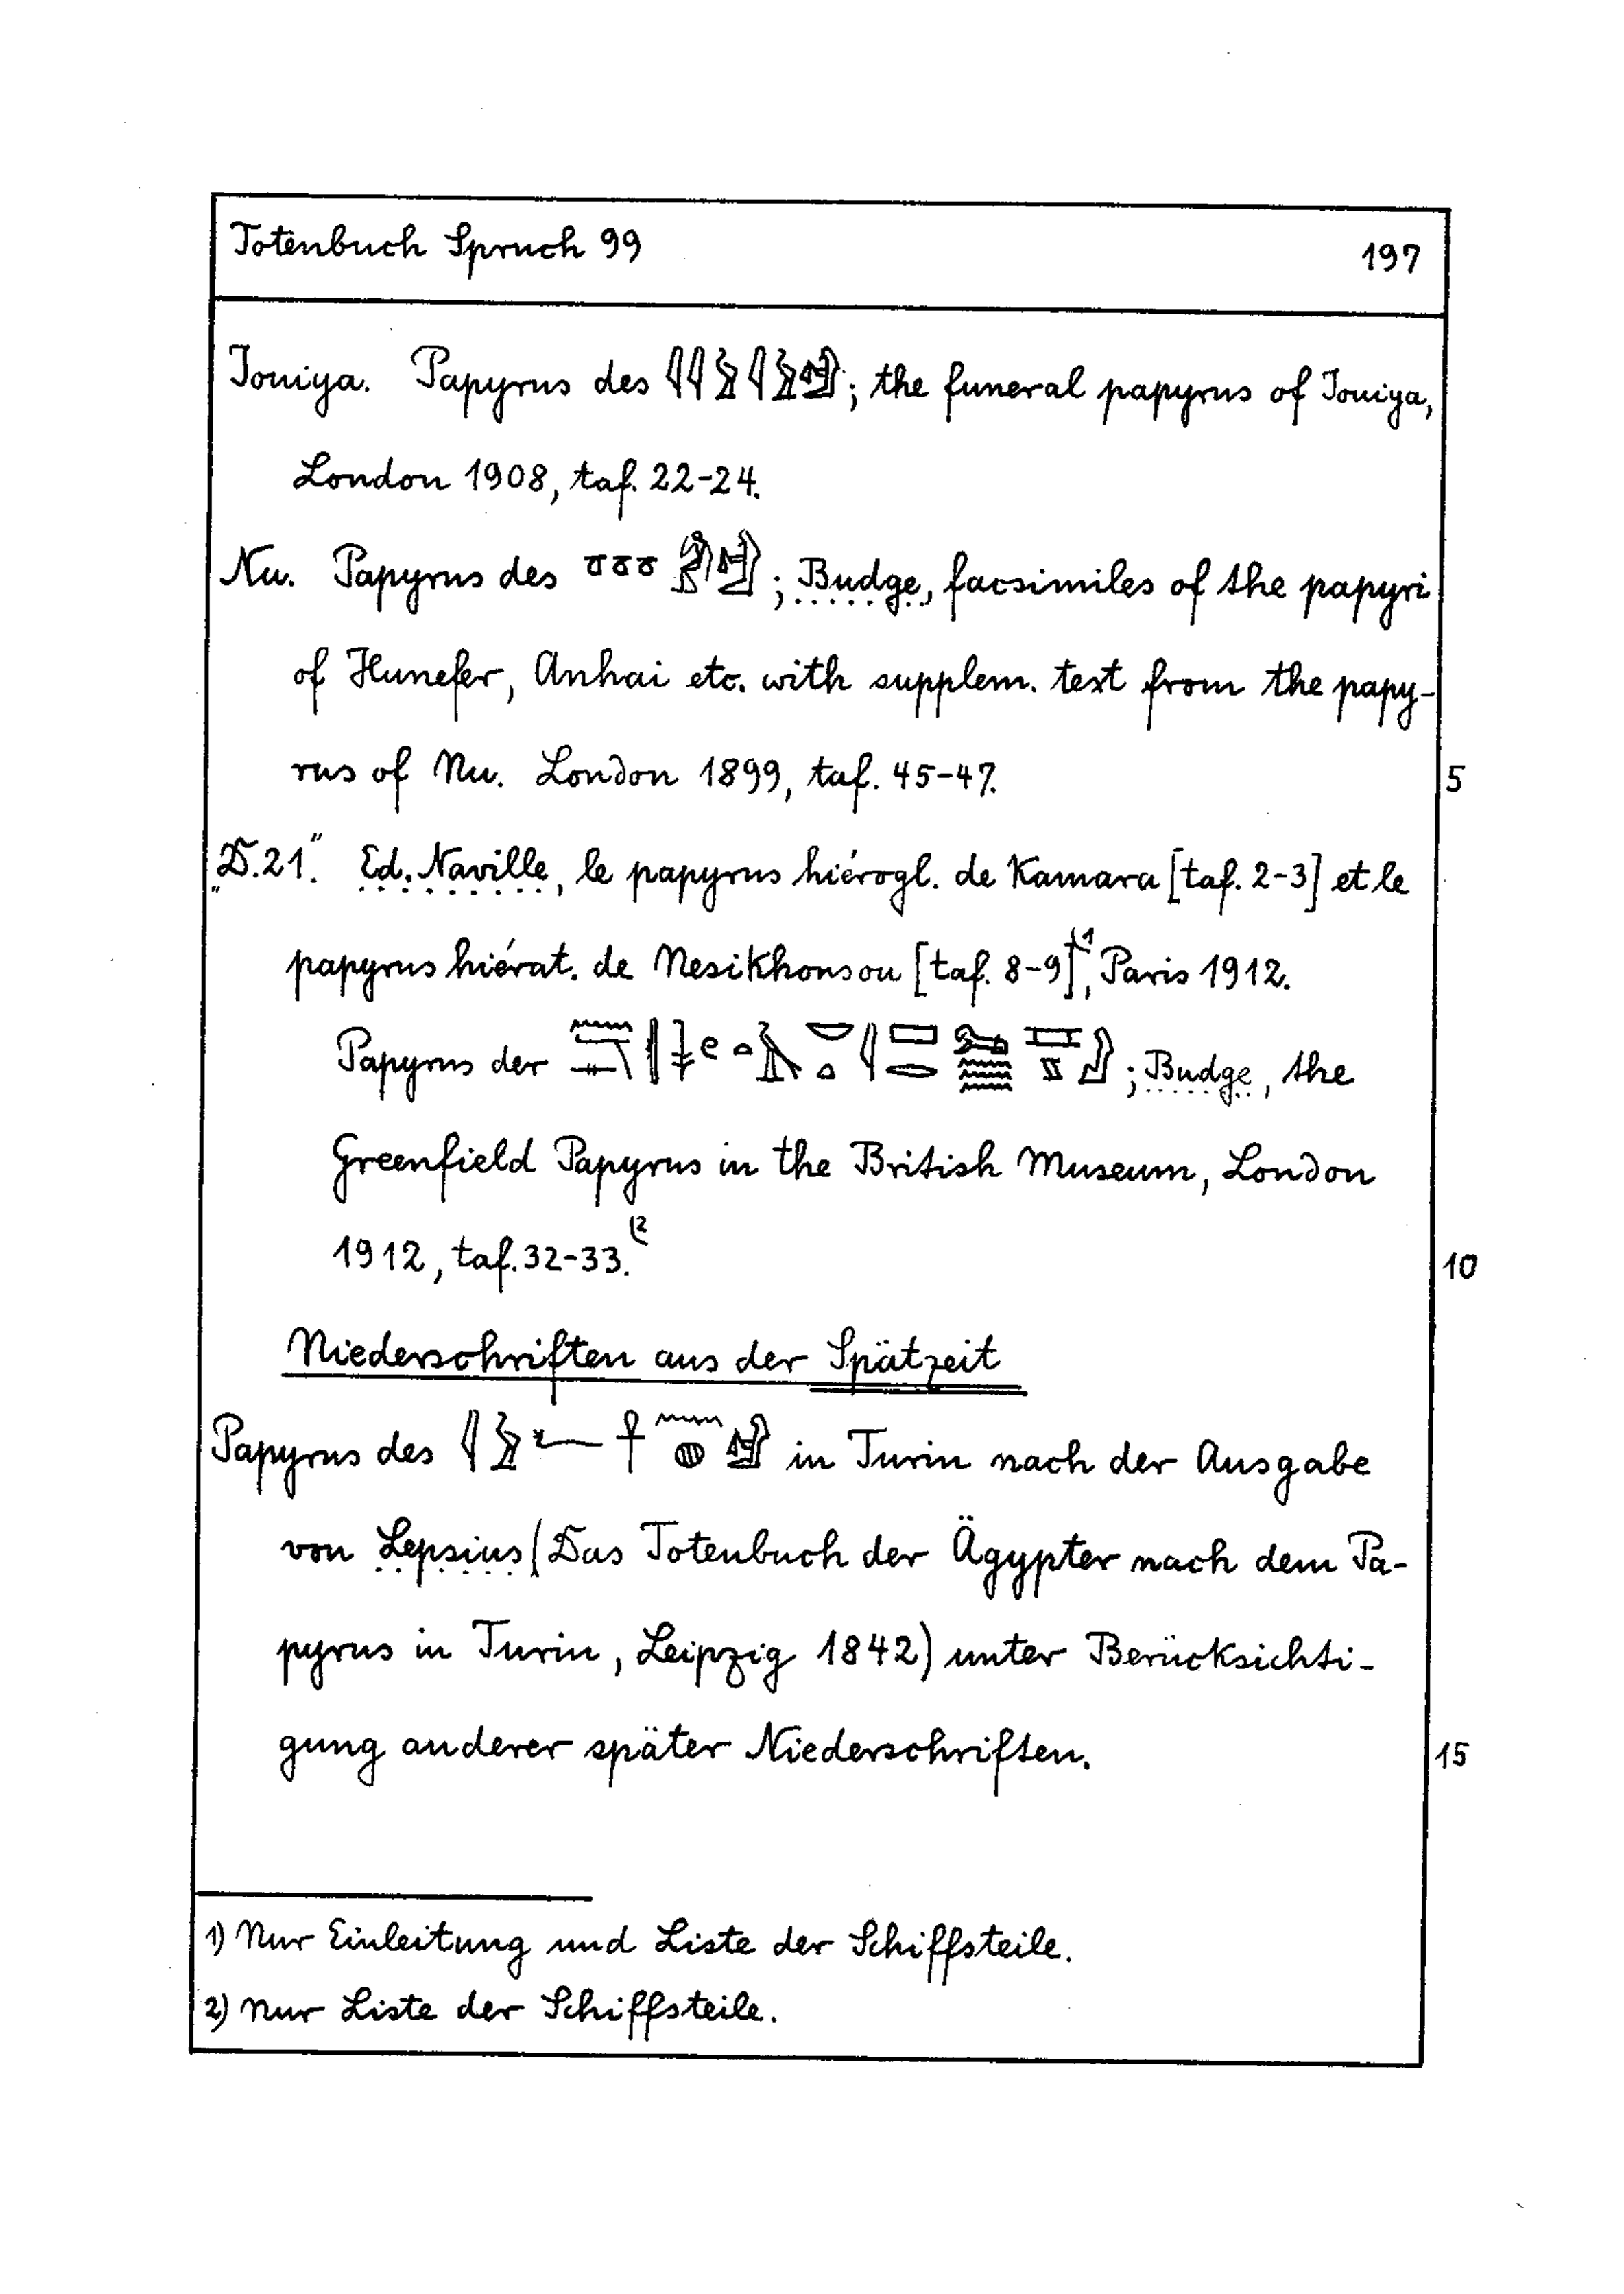 Totenbuch Spruch 99 197
Iouiya. Papyrus des ; the funeral papyrus of Iouiya,
London 1908, taf. 22-24.
Nu. Papyrus des ; Budge, facsimiles of the papyri
of Hunefer, Anhai etc. with supplem. text from the papy-
rus of Nu. London 1899, taf. 45-47. 5
„D.21.“ Ed. Naville, le papyrus hiérogl. de Kamara [taf. 2-3] et le
papyrus hiérat. de Nesikhonsou [taf. 8-9](1, Paris 1912.
Papyrus der ; Budge, the
Greenfield Papyrus in the British Museum, London
1912, taf. 32-33.(2 10
Niederschriften aus der Spätzeit
Papyrus des in Turin nach der Ausgabe
von Lepsius (Das Totenbuch der Ägypter nach dem Pa-
pyrus in Turin, Leipzig 1842) unter Berücksichti-
gung anderer später Niederschriften. 15
1) Nur Einleitung und Liste der Schiffsteile.
2) Nur Liste der Schiffsteile.